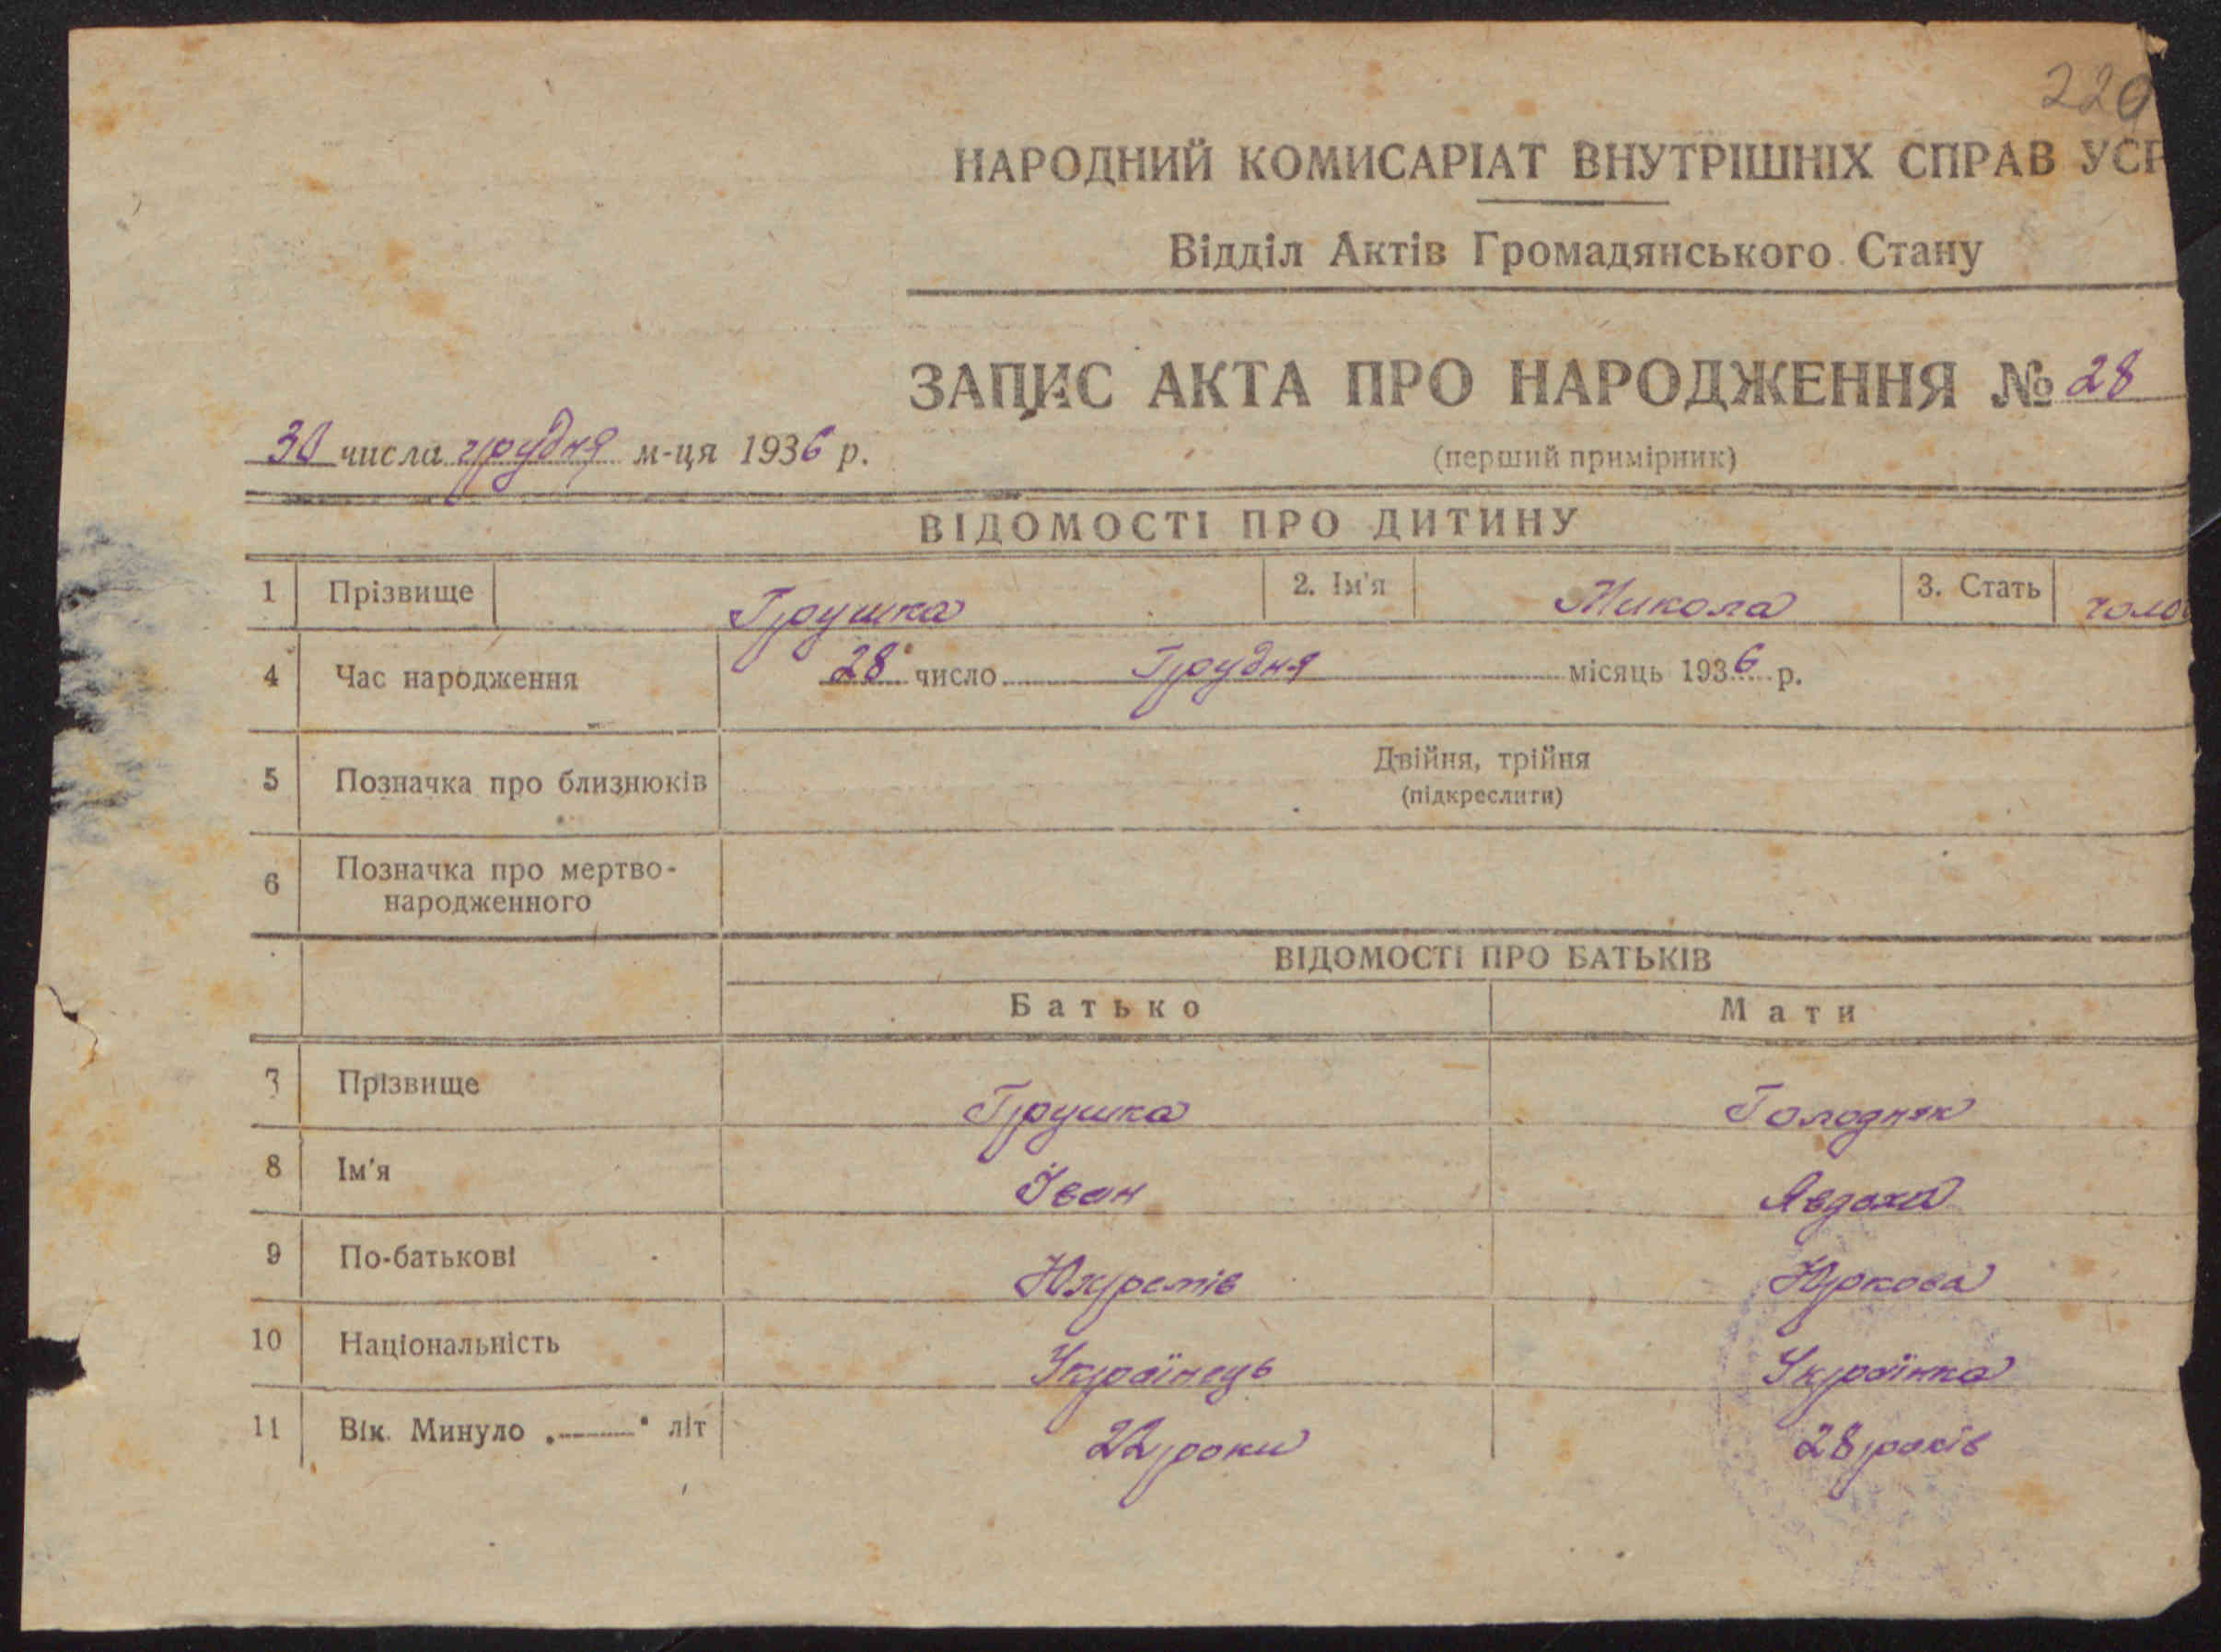 229
НАРОДНИЙ КОМИСАРІАТ ВНУТРІШНІХ СПРАВ УСР
Відділ Актів Громадянського Стану
ЗАПИС АКТА ПРО НАРОДЖЕННЯ № 28
30 числа грудня м-ця 1936 р.
(перший примірник)
ВІДОМОСТІ ПРО ДИТИНУ
1 Прізвище Грушка 2. Ім'я Микола 3. Стать чолов
4 Час народження 28 число Грудня місяць 1936 р.
5 Позначка про близнюків Двійня, трійня
(підкреслити)
6 Позначка про мертво-
народженного
ВІДОМОСТІ ПРО БАТЬКІВ
Батько Мати
7 Прізвище Грушка Голодняк
8 Ім'я Іван Явдоха
9 По-батькові Юхремів Юркова
10 Національність Українець Українка
11 Вік. Минуло „——" літ 22 роки 28 років